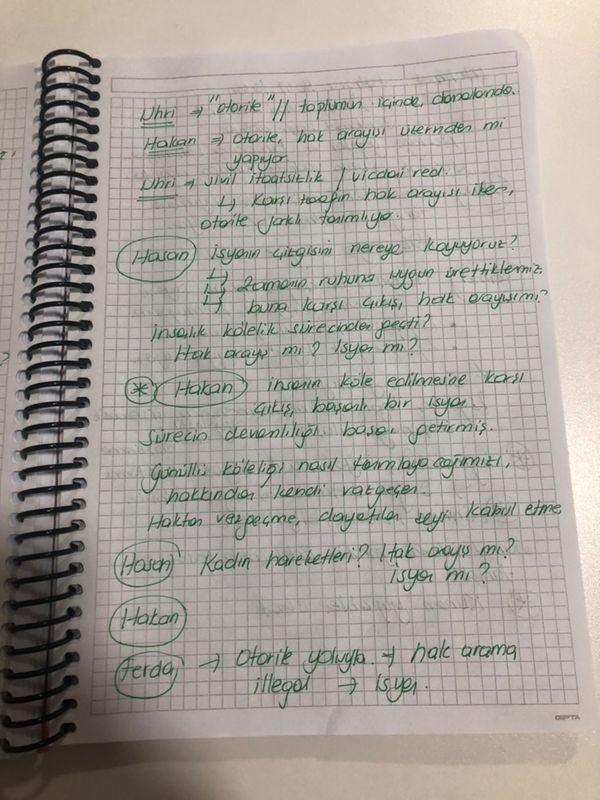 Uhri → "otorite" // toplumun içinde, donelonda.
Hakan → otorite, hak arayışı üzerinden mi
yapıyor
Uhri → sivil itaatsizlik / vicdai real.
↳ Karşı tarafın hak arayışı iken,
otorite farklı tanımlıyor.
Hasan isyanın çizgisini nereye koyuyoruz?
↳ zamanın ruhuna uygun ürettiklemiz
↳ buna karşı çıkışı, hak arayışı mı?
İnsalık kölelik sürecinden geçti?
Hak arayış mı? İsyan mı?
* Hakan insanın köle edilmesine karşı
çıkış, başarılı bir isyan.
Sürecin devamlılığı başarı getirmiş.
Gönüllü köleliği nasıl tanımlayacağımızı,
hakkından kendi vazgeçen.
Haktan vazgeçme, dayatılan şeyi kabul etme
Hasan Kadın hareketleri? Hak arayış mı?
isyan mı?
Hakan
Ferda → Otorite yoluyla → hak arama
illegal → isyan.
GIPTA